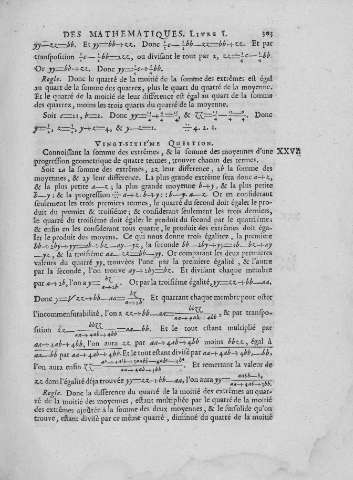 DES MATHEMATIQUES. LIVRE I. 303
yy=zz—bb. Et yy=bb+zz. Donc
transposition
Or yy=zz—bb. Donc
Regle. Donc le quarré de la moitié de la somme des extrêmes est égal
au quart de la somme des quarrez, plus le quart du quarré de la moyenne.
Et le quarré de la moitié de leur difference est égal au quart de la somme
des quarrez, moins les trois quarts du quarré de la moyenne.
Donc
VINGT-SIXIEME QUESTION.
Connoissant la somme des extrêmes, & la somme des moyennes d'une XXVI.
progression geometrique de quatre termes, trouver chacun des termes.
Soit 2a la somme des extrêmes, 2z leur difference, 2b la somme des
moyennes, & 2y leur difference. La plus grande extrême sera donc a+z,
& la plus petite a—z; la plus grande moyenne b+y, & la plus petite
b—y; & la progression a+z. b+y: b—y. a—z. Or en considerant
seulement les trois premiers termes, le quarré du second doit égaler le pro-
duit du premier & troisiéme; & considerant seulement les trois derniers,
le quarré du troisiéme doit égaler le produit du second par le quatriéme;
& enfin en les considerant tous quatre, le produit des extrêmes doit éga-
ler le produit des moyens. Ce qui nous donne trois égalitez, la premiere
bb+2by+yy=ab+bz—ay—yz; la seconde bb—2by+yy=ab—bz+ay
—yz, & la troisiéme aa—zz=bb—yy. Or comparant les deux premieres
valeurs du quarré yy, trouvées l'une par la premiere égalité, & l'autre
par la seconde, l'on trouve ay+2by=bz. Et divisant chaque membre
par a+2b, l'on a y= Or par la troisiéme égalité, yy=zz+bb—aa.
Donc Et quarrant chaque membre pour oster
l'incommensurabilité, l'on a zz+bb—aa= & par transpo-
sition Et le tout estant multiplié par
aa+4ab+4bb, l'on aura zz par aa+4ab+4bb moins bbzz, égal à
aa—bb par aa+4ab+4bb. Et le tout estant divisé par aa+4ab+4bb—bb,
l'on aura enfin Et remettant la valeur de
zz dans l'égalité déja trouvée yy=zz+bb—aa, l'on aura
Regle. Donc la difference du quarré de la moitié des extrêmes au quar-
ré de la moitié des moyennes, estant multipliée par le quarré de la moitié
des extrêmes ajoûtée à la somme des deux moyennes, & le sursolide qu'on
trouve, estant divisé par ce même quarré, diminué du quarré de la moitié